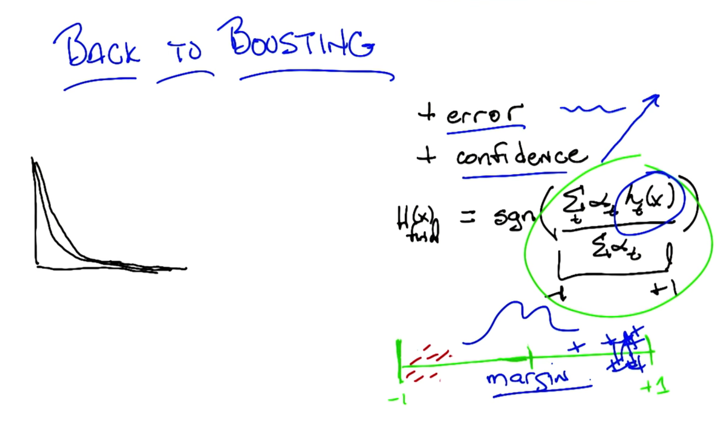 BACK TO BOOSTING
+ error
+ confidence
H(x) = sgn( Σ_t α_t h_t(x) / Σ_t α_t )
-1 +1
margin
-1 +1